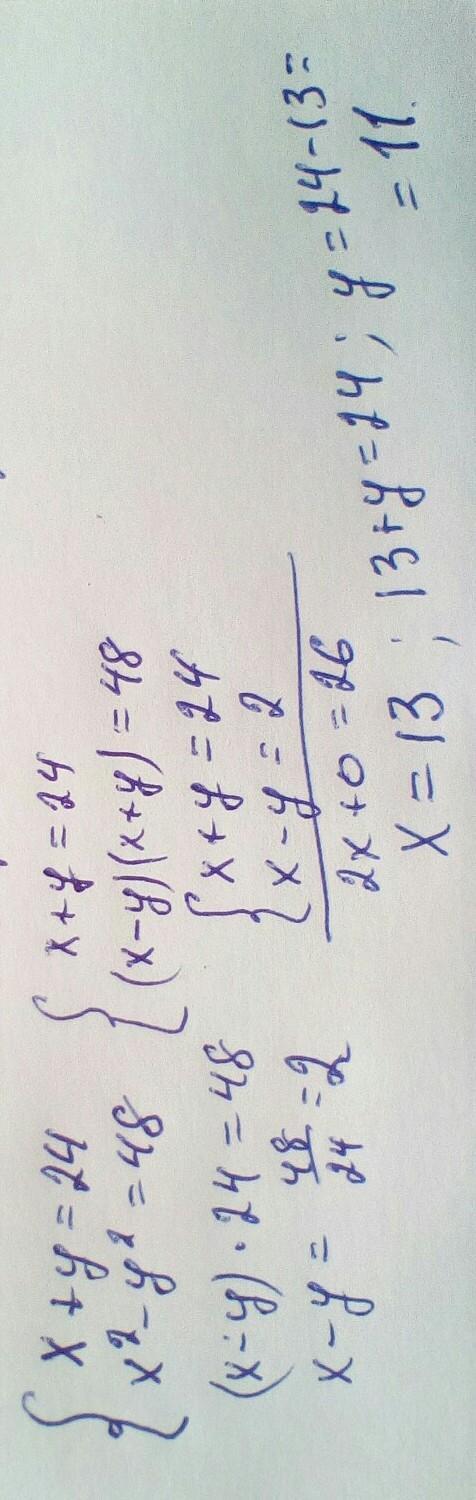 { x + y = 24 { x + y = 24
x² - y² = 48 (x-y)(x+y) = 48
(x-y) · 24 = 48 { x + y = 24
x - y = 48/24 = 2 x - y = 2
2x + 0 = 26
x = 13 ; 13+y = 24 ; y = 24-13 =
= 11.